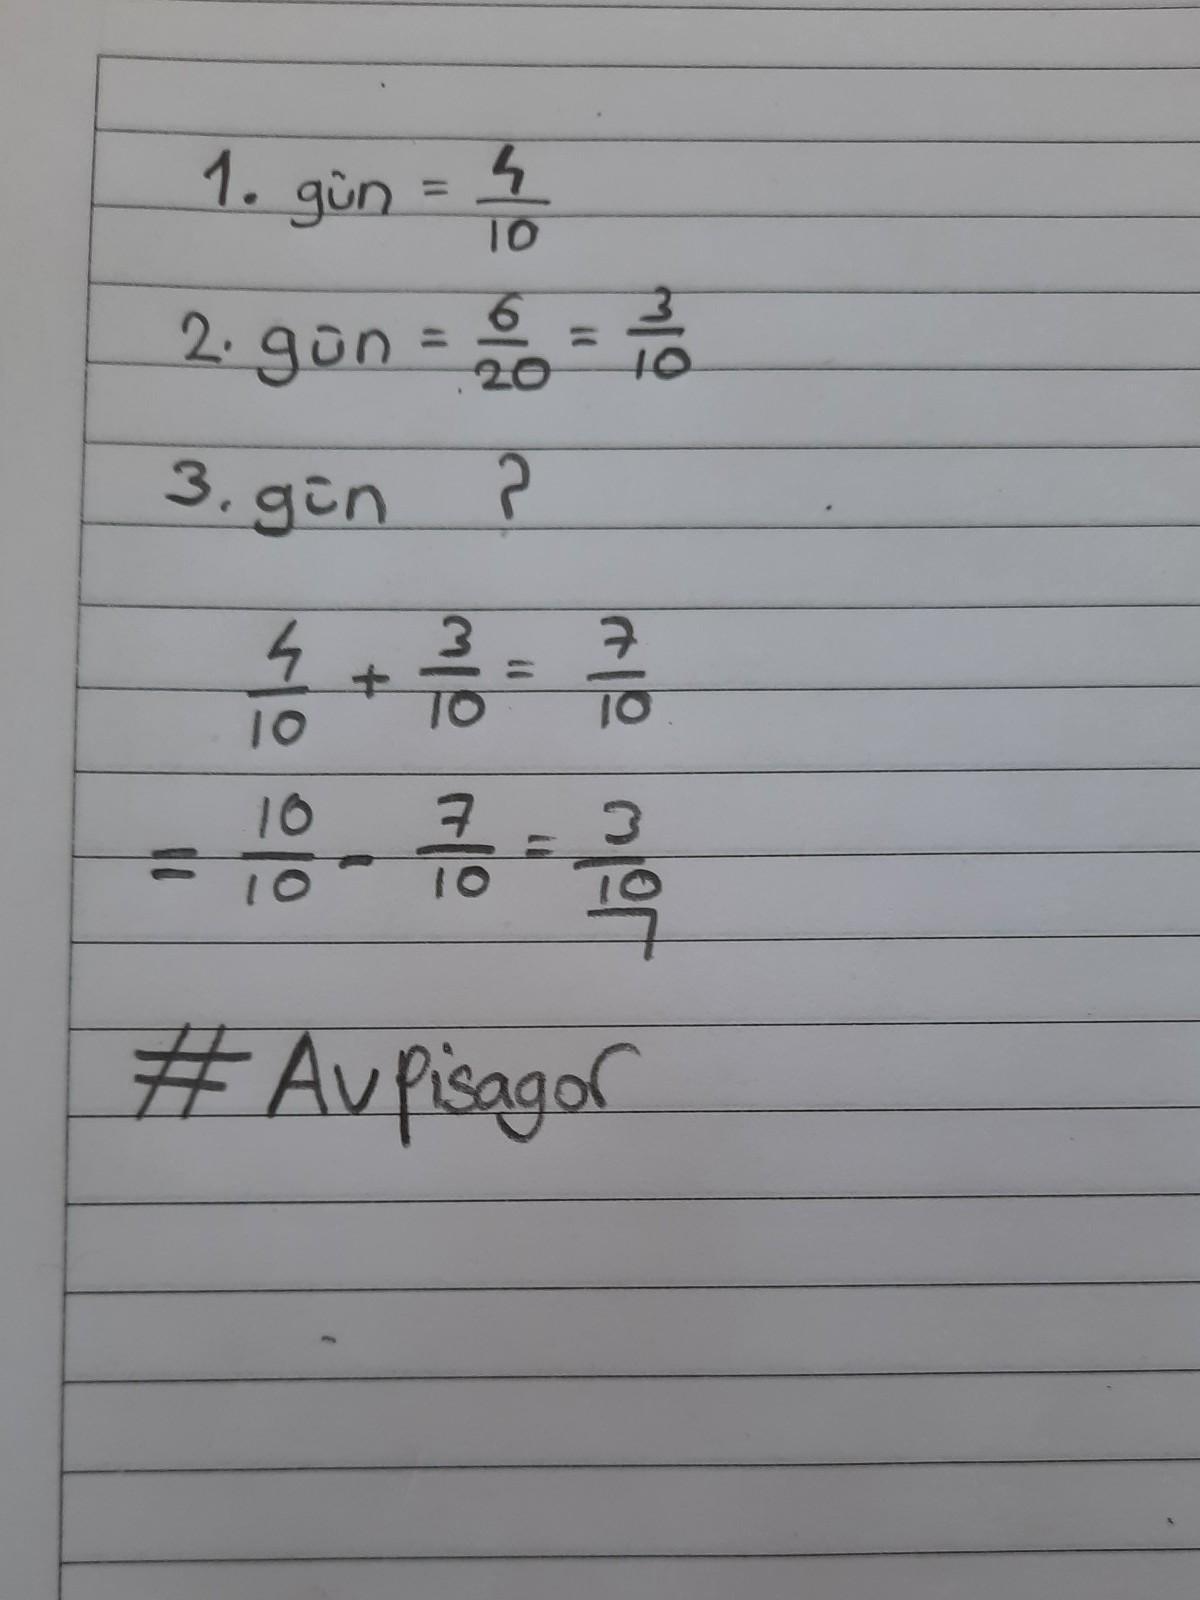 1. gün = 4/10
2. gün = 6/20 = 3/10
3. gün ?
4/10 + 3/10 = 7/10
= 10/10 - 7/10 = 3/10
# Avpisagor